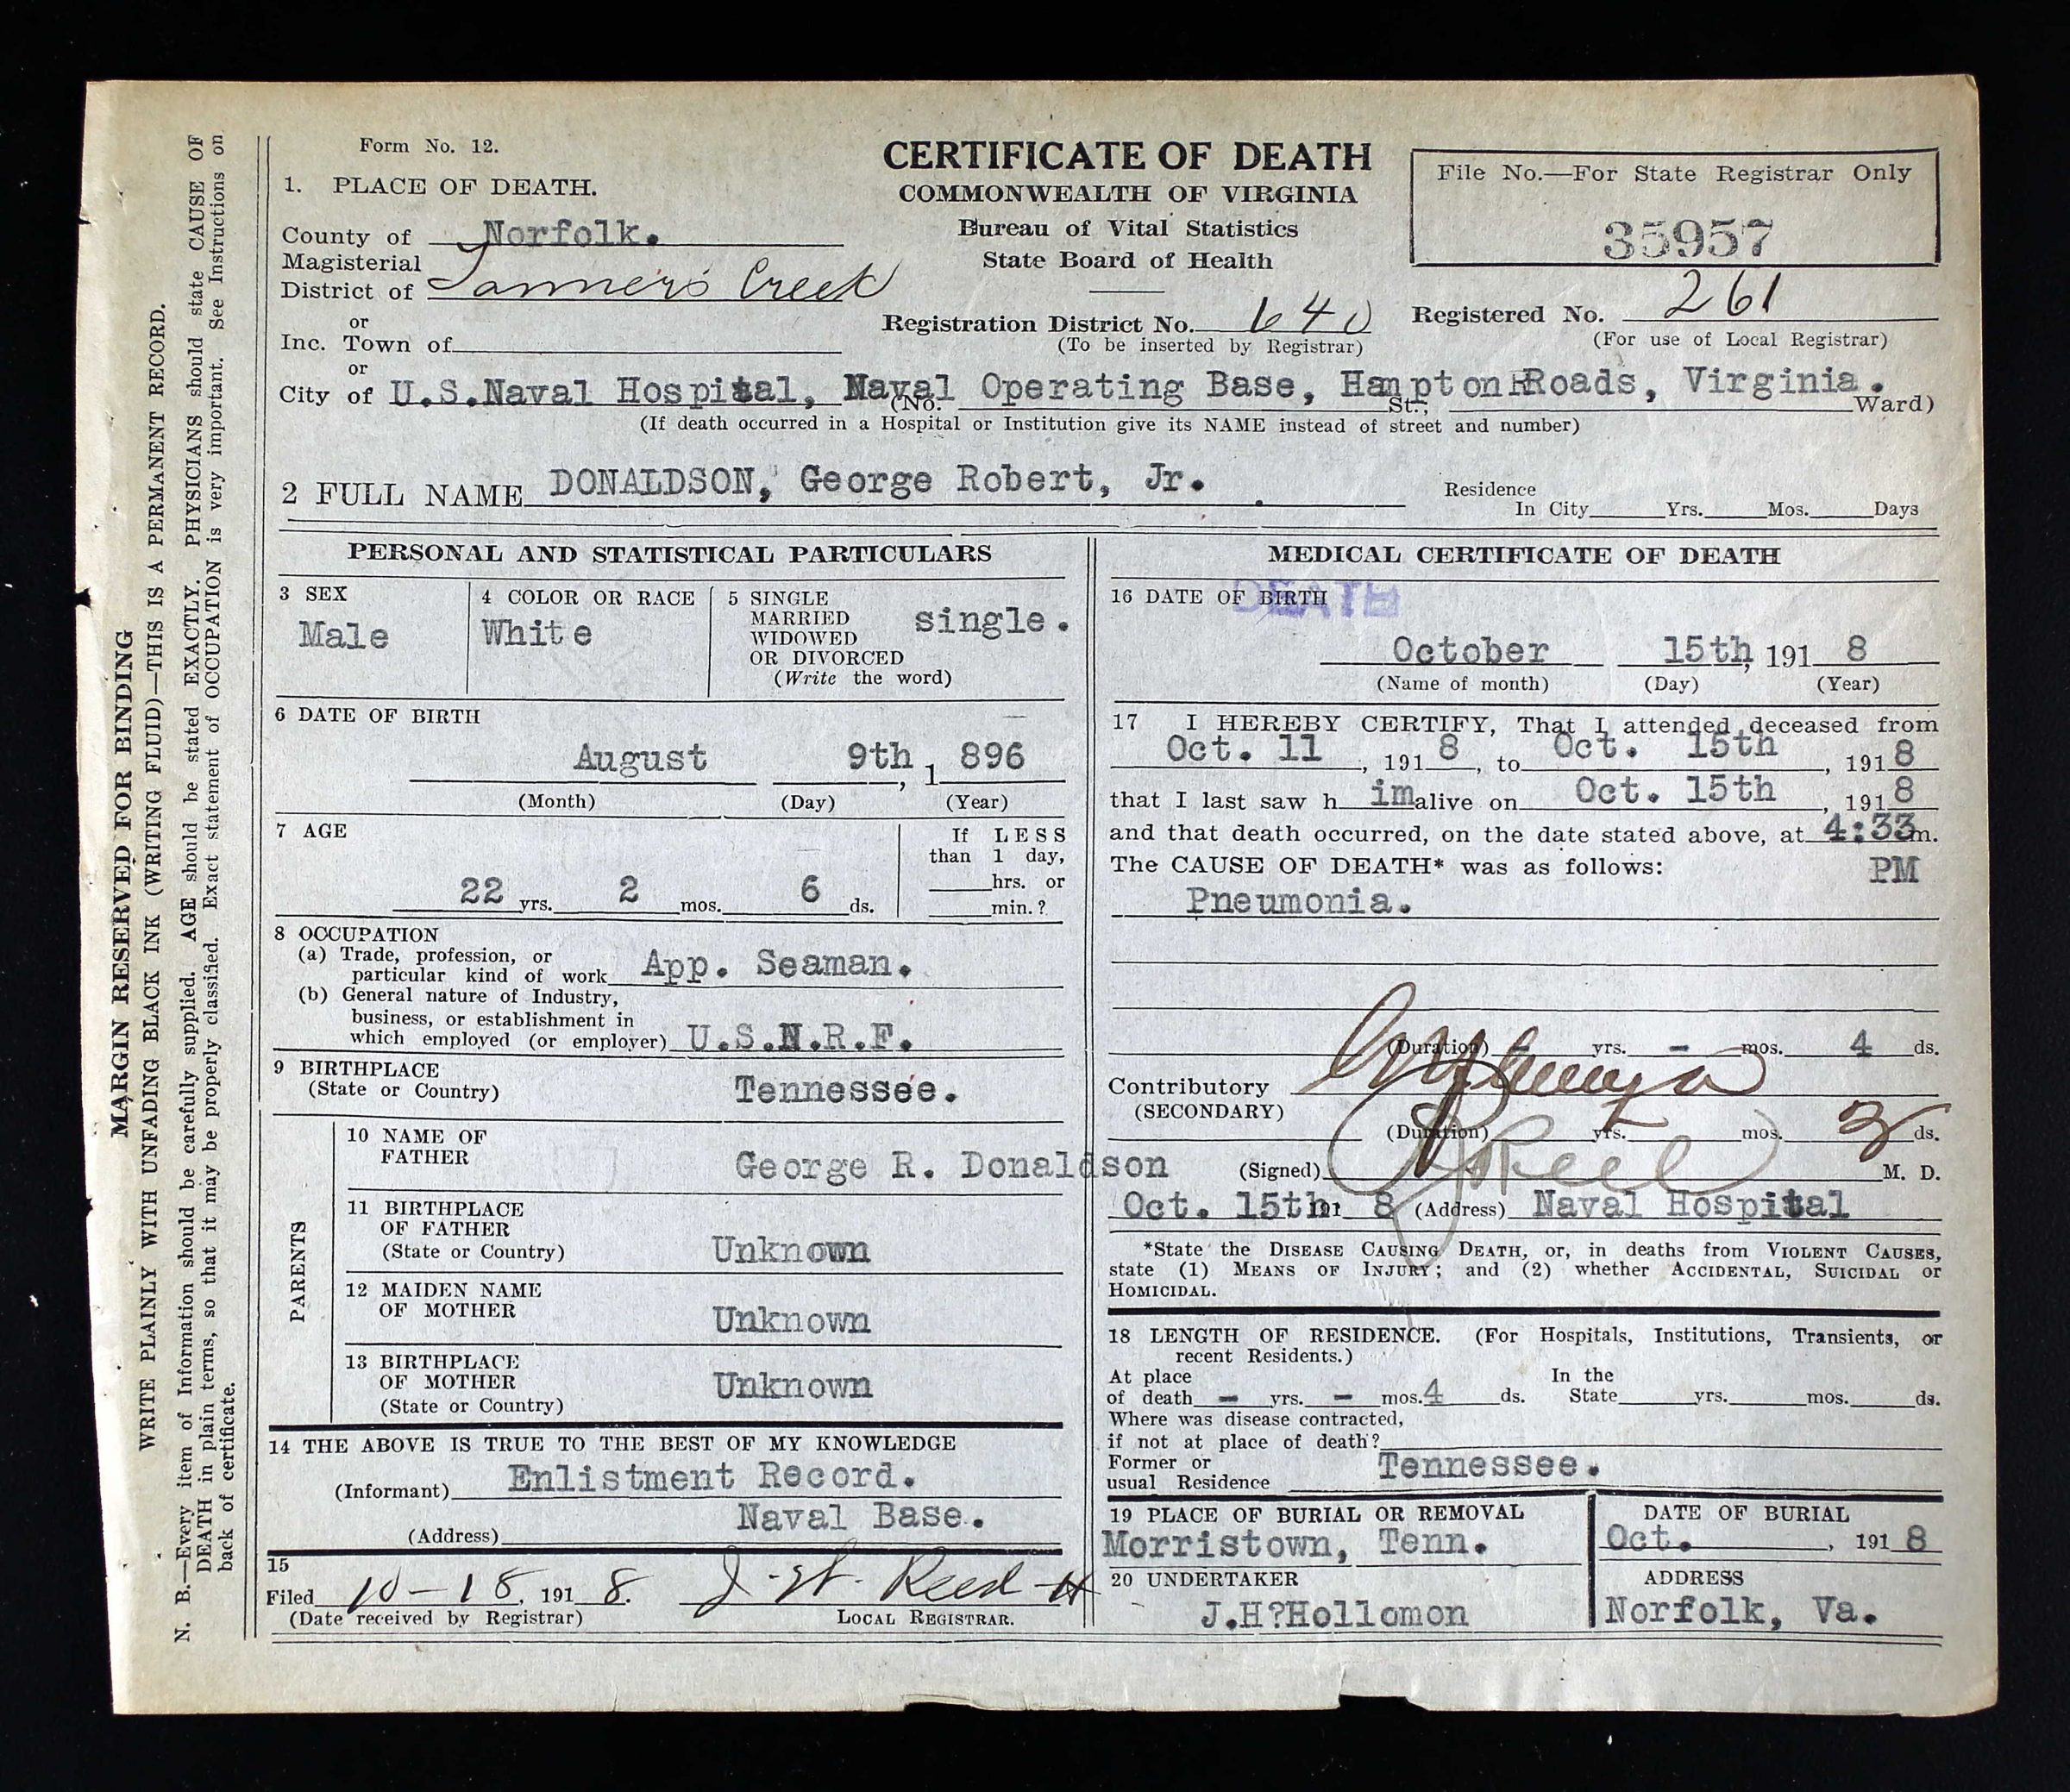 Form No. 12.
1. PLACE OF DEATH.
County of Norfolk.
Magisterial
District of Tanners Creek
or
Inc. Town of
or
City of U.S.Naval Hospital, Naval Operating Base, Hampton Roads, Virginia.
(No. St.; Ward)
(If death occurred in a Hospital or Institution give its NAME instead of street and number)
CERTIFICATE OF DEATH
COMMONWEALTH OF VIRGINIA
Bureau of Vital Statistics
State Board of Health
Registration District No. 640
(To be inserted by Registrar)
File No.—For State Registrar Only
35957
Registered No. 261
(For use of Local Registrar)
2 FULL NAME DONALDSON, George Robert, Jr.
Residence
In City Yrs. Mos. Days
PERSONAL AND STATISTICAL PARTICULARS
3 SEX
Male
4 COLOR OR RACE
White
5 SINGLE
MARRIED
WIDOWED
OR DIVORCED
(Write the word)
single.
6 DATE OF BIRTH
August 9th, 1 896
(Month) (Day) (Year)
7 AGE
22 yrs. 2 mos. 6 ds.
If LESS
than 1 day,
hrs. or
min.?
8 OCCUPATION
(a) Trade, profession, or
particular kind of work App. Seaman.
(b) General nature of Industry,
business, or establishment in
which employed (or employer) U.S.N.R.F.
9 BIRTHPLACE
(State or Country) Tennessee.
PARENTS
10 NAME OF
FATHER
George R. Donaldson
11 BIRTHPLACE
OF FATHER
(State or Country) Unknown
12 MAIDEN NAME
OF MOTHER
Unknown
13 BIRTHPLACE
OF MOTHER
(State or Country)
Unknown
14 THE ABOVE IS TRUE TO THE BEST OF MY KNOWLEDGE
(Informant) Enlistment Record.
(Address) Naval Base.
15
Filed 10-18, 191 8. J. W. Reed
(Date received by Registrar) LOCAL REGISTRAR.
MEDICAL CERTIFICATE OF DEATH
16 DATE OF BIRTH
DEATH
October 15th, 191 8
(Name of month) (Day) (Year)
17 I HEREBY CERTIFY, That I attended deceased from
Oct. 11, 191 8, to Oct. 15th, 191 8
that I last saw h im alive on Oct. 15th, 191 8
and that death occurred, on the date stated above, at 4:33 m.
The CAUSE OF DEATH* was as follows: PM
Pneumonia.
(Duration) - yrs. - mos. 4 ds.
Contributory
(SECONDARY)
(Duration) yrs. mos. ds.
(Signed) M. D.
Oct. 15th 191 8 (Address) Naval Hospital
*State the DISEASE CAUSING DEATH, or, in deaths from VIOLENT CAUSES,
state (1) MEANS OF INJURY; and (2) whether ACCIDENTAL, SUICIDAL or
HOMICIDAL.
18 LENGTH OF RESIDENCE. (For Hospitals, Institutions, Transients, or
recent Residents.)
At place
of death - yrs. - mos. 4 ds.
In the
State yrs. mos. ds.
Where was disease contracted,
if not at place of death?
Former or
usual Residence Tennessee.
19 PLACE OF BURIAL OR REMOVAL
Morristown, Tenn.
DATE OF BURIAL
Oct. , 191 8
20 UNDERTAKER
J.H?Hollomon
ADDRESS
Norfolk, Va.
MARGIN RESERVED FOR BINDING
WRITE PLAINLY WITH UNFADING BLACK INK (WRITING FLUID)—THIS IS A PERMANENT RECORD.
N. B.—Every item of Information should be carefully supplied. AGE should be stated EXACTLY. PHYSICIANS should state CAUSE OF
DEATH in plain terms, so that it may be properly classified. Exact statement of OCCUPATION is very important. See Instructions on
back of certificate.